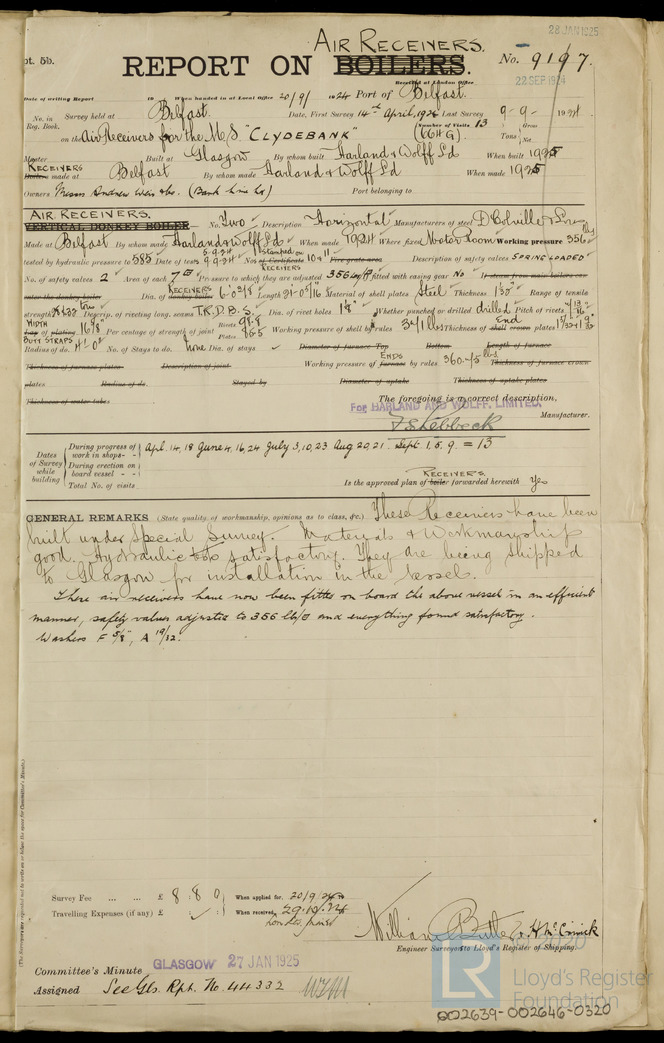 28 JAN 1925
pt. 5b.
AIR RECEIVERS.
REPORT ON BOILERS.
No. 9197.
Received at London Office
22 SEP 1924
Date of writing Report 19 When handed in at Local Office 20/9/ 1924 Port of Belfast.
No. in Reg. Book. Survey held at Belfast. Date, First Survey 14th April, 1924 Last Survey 9-9- 1924
on the Air Receivers for the M/S "CLYDEBANK" (664G). (Number of Visits 13 Tons Gross Net
Master Built at Glasgow By whom built Harland & Wolff Ld When built 1925
RECEIVERS
Boilers made at Belfast By whom made Harland & Wolff Ld When made 1925
Owners Messrs Andrew Weir & Co. (Bank Line Ld) Port belonging to
AIR RECEIVERS.
VERTICAL DONKEY BOILER No. Two Description Horizontal Manufacturers of steel D Colville & Sons
Made at Belfast By whom made Harland & Wolff Ld When made 1924 Where fixed Motor Room Working pressure 356 lbs
tested by hydraulic pressure to 585 Date of tests 5.9.24 9.9.24 No. of Certificate Stamped on RECEIVERS 10 & 11 Fire grate area Description of safety valves SPRING LOADED
No. of safety valves 2 Area of each Pressure to which they are adjusted 356 fitted with easing gear No If steam from main boilers can
enter the donkey boiler Dia. of donkey boiler RECEIVERS Length Material of shell plates Steel Thickness Range of tensile
strength Descrip. of riveting long. seams T.R.D.B.S. Dia. of rivet holes Whether punched or drilled drilled Pitch of rivets
WIDTH
Lap of plating Per centage of strength of joint Rivets 98.8 Plates 86.5 Working pressure of shell by rules 371 lbs Thickness of shell crown plates End
BUTT STRAPS
Radius of do. No. of Stays to do. none Dia. of stays Diameter of furnace Top Bottom Length of furnace
Thickness of furnace plates Description of joint Working pressure of furnace ENDS by rules 360.5 lbs Thickness of furnace crown
plates Radius of do. Stayed by Diameter of uptake Thickness of uptake plates
Thickness of water tubes The foregoing is a correct description,
For HARLAND AND WOLFF, LIMITED Manufacturer.
Dates of Survey while building
During progress of work in shops - - Apl. 14, 18 June 4, 16, 24 July 3, 10, 23 Aug 20, 21. Sept. 1. 5. 9. = 13
During erection on board vessel - -
Total No. of visits
RECEIVERS
Is the approved plan of boiler forwarded herewith Yes
GENERAL REMARKS (State quality of workmanship, opinions as to class, &c.) These Receivers have been
built under Special Survey. Materials & Workmanship
good. Hydraulic tests satisfactory. They are being shipped
to Glasgow for installation in the vessel.
These air receivers have now been fitted on board the above vessel in an efficient
manner, safety valves adjusted to 356 lb/□" and everything found satisfactory.
Washers F 5/8", A 19/32.
Survey Fee ... ... £ 8 : 8 : 0 When applied for, 20/9/24
Travelling Expenses (if any) £ When received, 29.10.24
William Butler & H McCormick
Engineer Surveyors to Lloyd's Register of Shipping.
Committee's Minute GLASGOW 27 JAN 1925
Assigned See Gls. Rpt. No. 44332
LR
Lloyd's Register
Foundation
002639-002646-0320